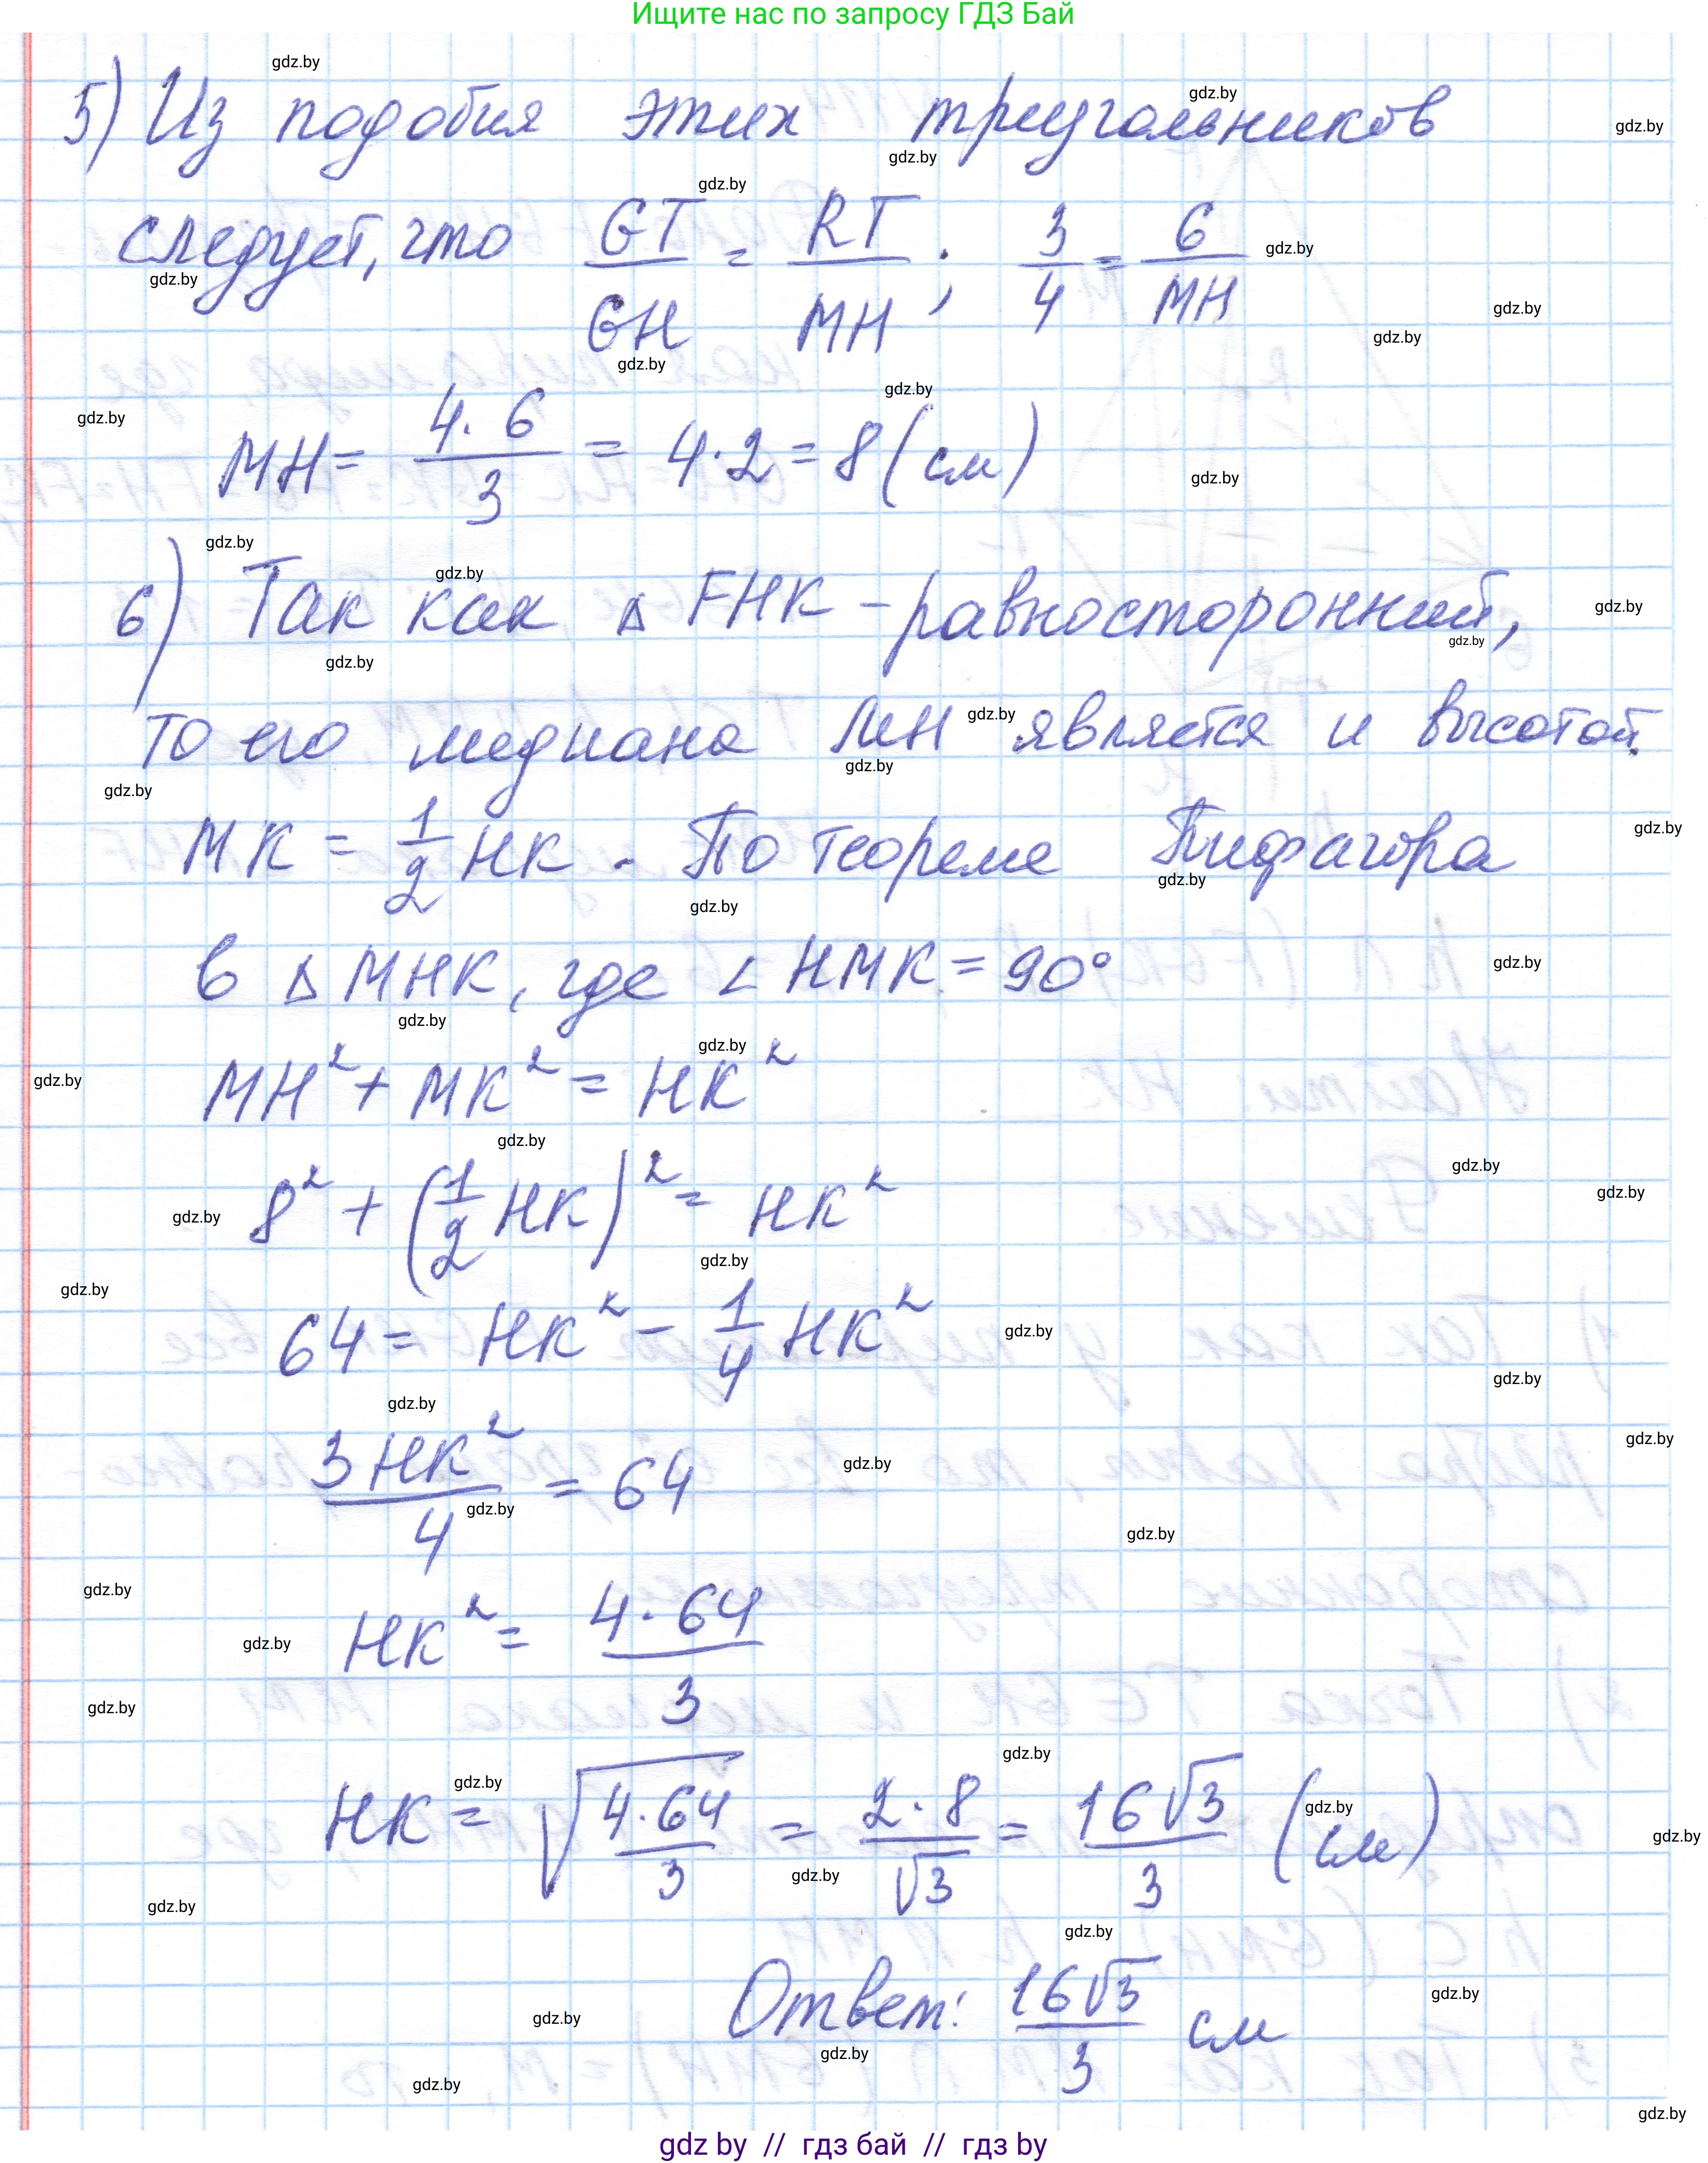 Ищите нас по запросу ГДЗ Бай
5) Из подобия этих треугольников
следует, что GT/GH = RT/MH; 3/4 = 6/MH
MH = 4·6/3 = 4·2 = 8 (см)
6) Так как △ FHK – равносторонний,
то его медиана MH является и высотой.
MK = 1/2 HK. По теореме Пифагора
в △ MHK, где ∠ HMK = 90°
MH² + MK² = HK²
8² + (1/2 HK)² = HK²
64 = HK² − 1/4 HK²
3HK²/4 = 64
HK² = 4·64/3
HK = √(4·64/3) = 2·8/√3 = 16√3/3 (см)
Ответ: 16√3/3 см
gdz by // гдз бай // гдз by